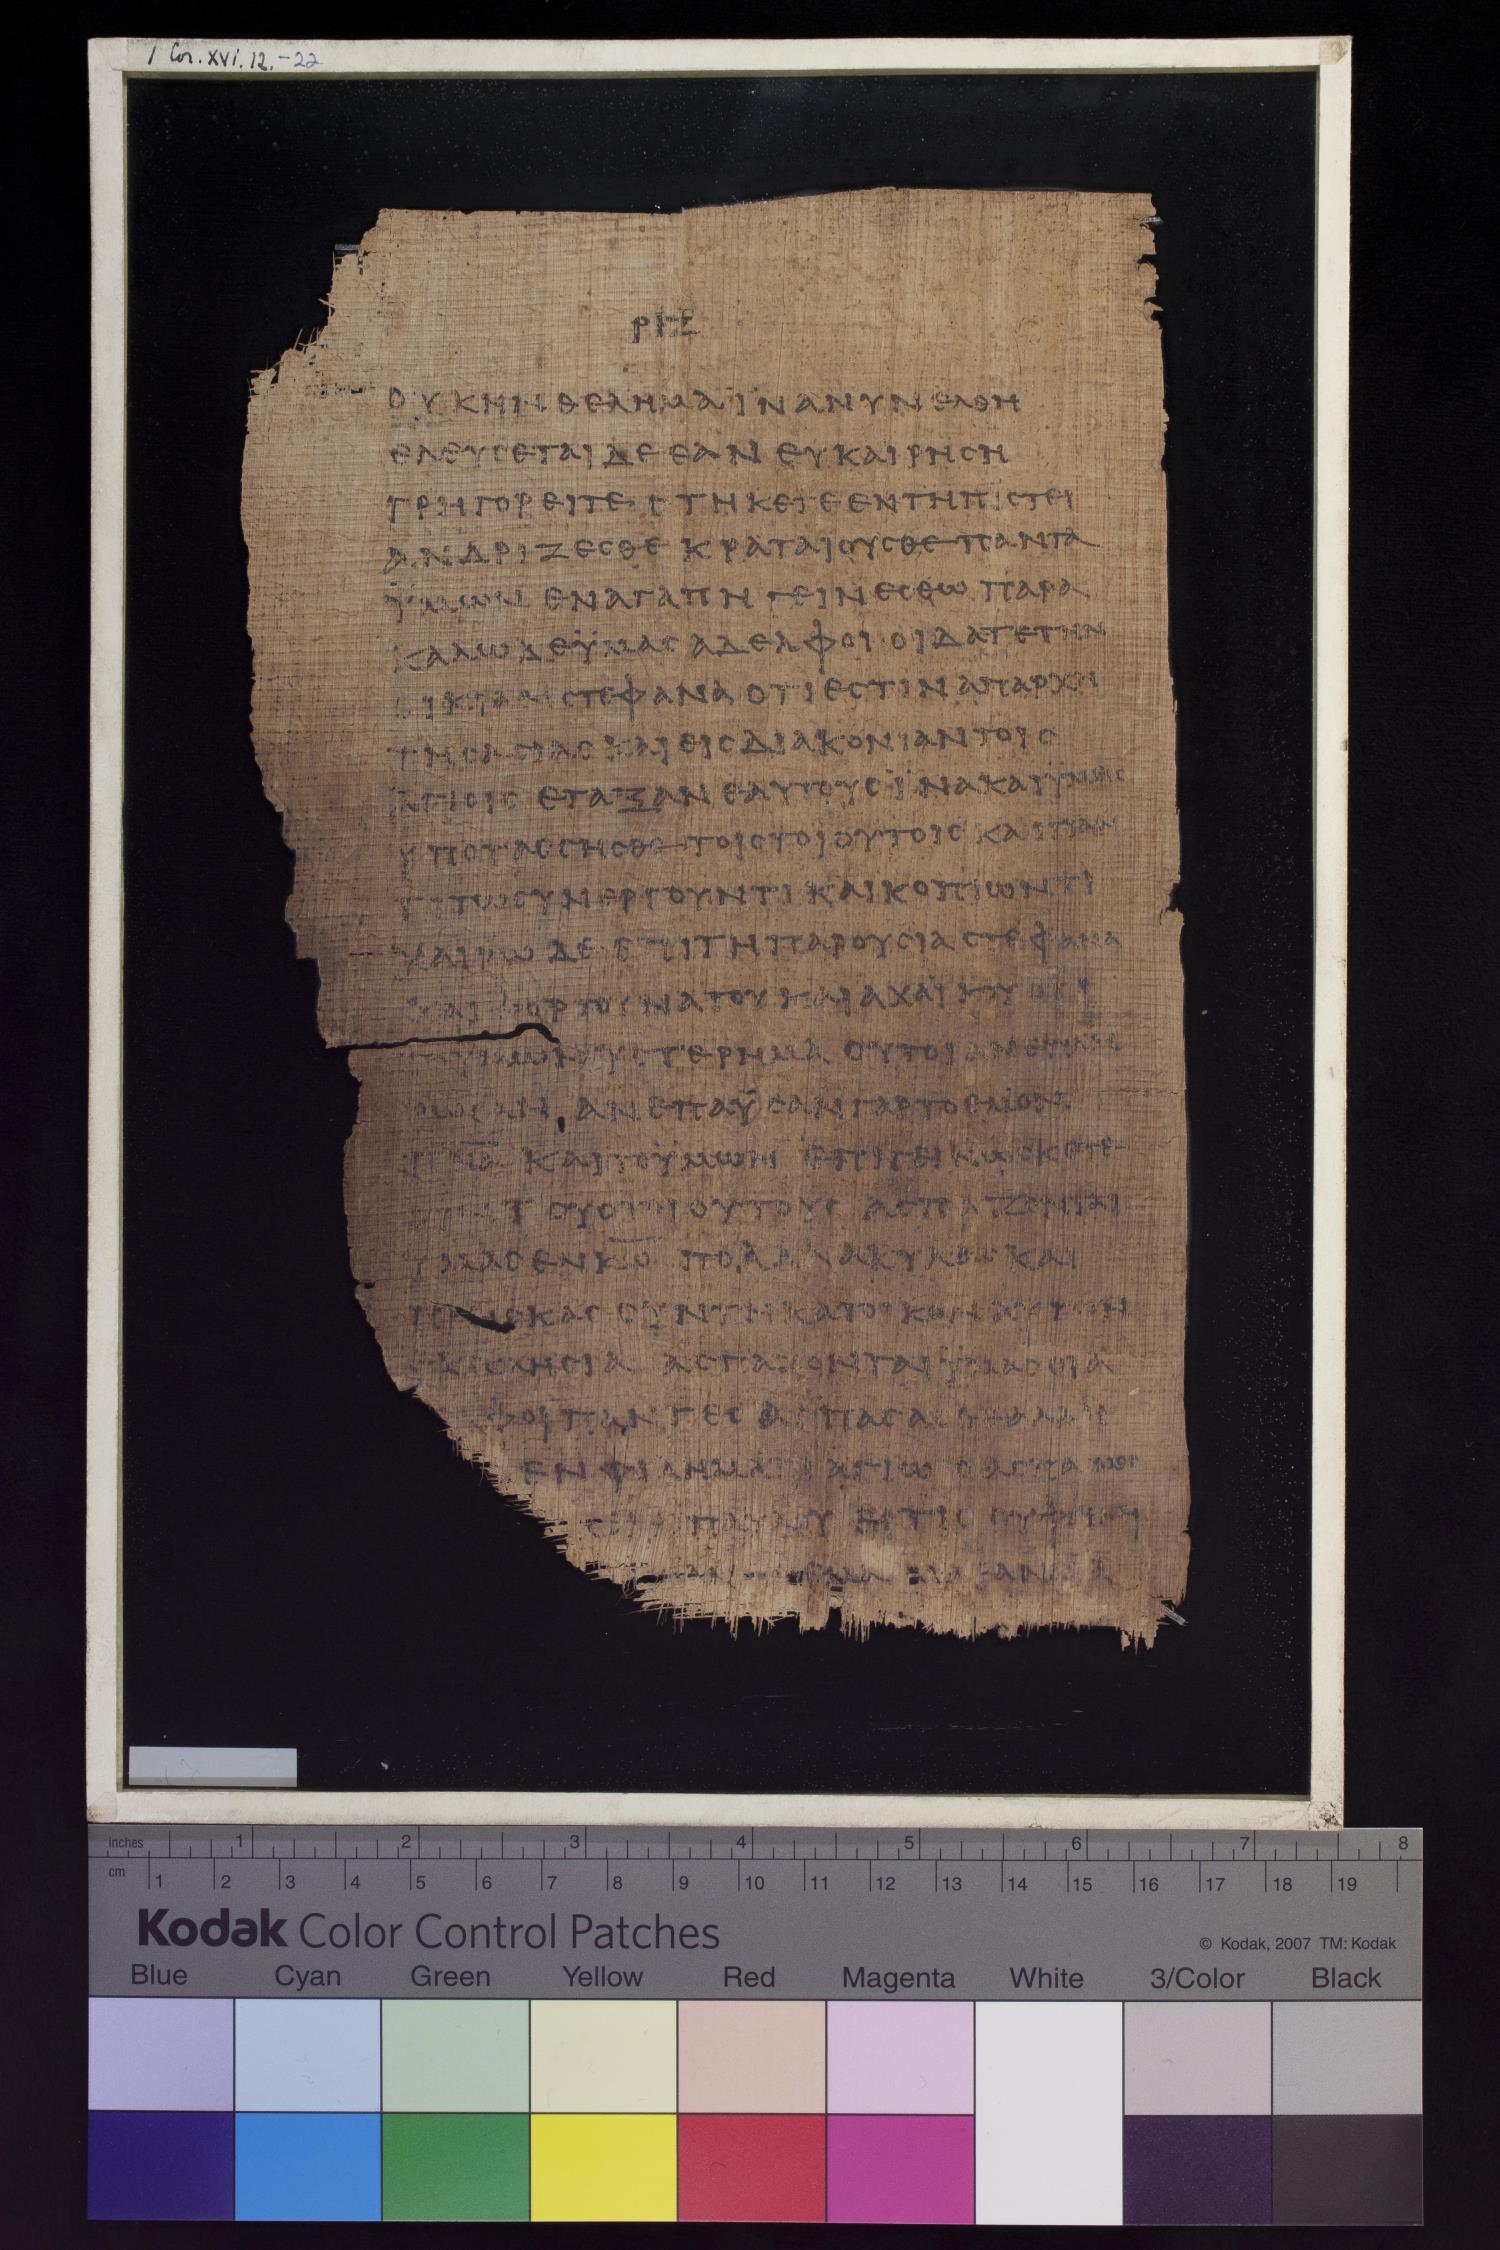 1 Cor. XVI. 12.-22
ΡΙΞ
ΟΥΚ ΗΝ ΘΕΛΗΜΑ ΪΝΑ ΝΥΝ ΕΛΘΗ
ΕΛΕΥСΕΤΑΙ ΔΕ ΕΑΝ ΕΥΚΑΙΡΗСΗ
ΓΡΗΓΟΡΕΙΤΕ СΤΗΚΕΤΕ ΕΝ ΤΗ ΠΙСΤΕΙ
ΑΝΔΡΙΖΕСΘΕ ΚΡΑΤΑΙΟΥСΘΕ ΠΑΝΤΑ
ΫΜΩΝ ΕΝ ΑΓΑΠΗ ΓΕΙΝΕСΘΩ ΠΑΡΑ
ΚΑΛΩ ΔΕ ΫΜΑС ΑΔΕΛΦΟΙ ΟΙΔΑΤΕ ΤΗΝ
ΟΙΚΙΑΝ СΤΕΦΑΝΑ ΟΤΙ ΕСΤΙΝ ΑΠΑΡΧΗ
ΤΗС ΑСΙΑС ΚΑΙ ΕΙС ΔΙΑΚΟΝΙΑΝ ΤΟΙС
ΑΓΙΟΙС ΕΤΑΞΑΝ ΕΑΥΤΟΥС ΪΝΑ ΚΑΙ ΫΜΕΙС
ΥΠΟΤΑССΗСΘΕ ΤΟΙС ΤΟΙΟΥΤΟΙС ΚΑΙ ΠΑΝ
ΤΙ ΤΩ СΥΝΕΡΓΟΥΝΤΙ ΚΑΙ ΚΟΠΙΩΝΤΙ
ΧΑΙΡΩ ΔΕ ΕΠΙ ΤΗ ΠΑΡΟΥСΙΑ СΤΕΦΑΝΑ
ΚΑΙ ΦΟΡΤΟΥΝΑΤΟΥ ΚΑΙ ΑΧΑΪΚΟΥ ΟΤΙ
ΥΜΩΝ ΥСΤΕΡΗΜΑ ΟΥΤΟΙ ΑΝΕΠΛΗ
ΑΝΕΠΑΫСΑΝ ΓΑΡ ΤΟ ΕΜΟΝ
ΠΝΑ ΚΑΙ ΤΟ ΫΜΩΝ ΕΠΙΓΕΙΝΩСΚΕΤΕ
ΟΥΝ ΤΟΥС ΤΟΙΟΥΤΟΥС ΑСΠΑΖΟΝΤΑΙ
ΫΜΑС ΕΝ ΚΩ ΠΟΛΛΑ ΑΚΥΛΑС ΚΑΙ
СΥΝ ΤΗ ΚΑΤ ΟΙΚΟΝ ΑΥΤΩΝ
ΕΚΚΛΗСΙΑ ΑСΠΑΖΟΝΤΑΙ ΫΜΑС ΟΙ Α
ΦΟΙ ΠΑΝΤΕС ΑСΠΑСΑСΘΕ ΑΛΛΗ
ΕΝ ΦΙΛΗΜΑΤΙ ΑΓΙΩ Ο ΑСΠΑСΜΟС
ΠΑΥΛΟΥ ΕΙ ΤΙС ΟΥ ΦΙΛΕΙ